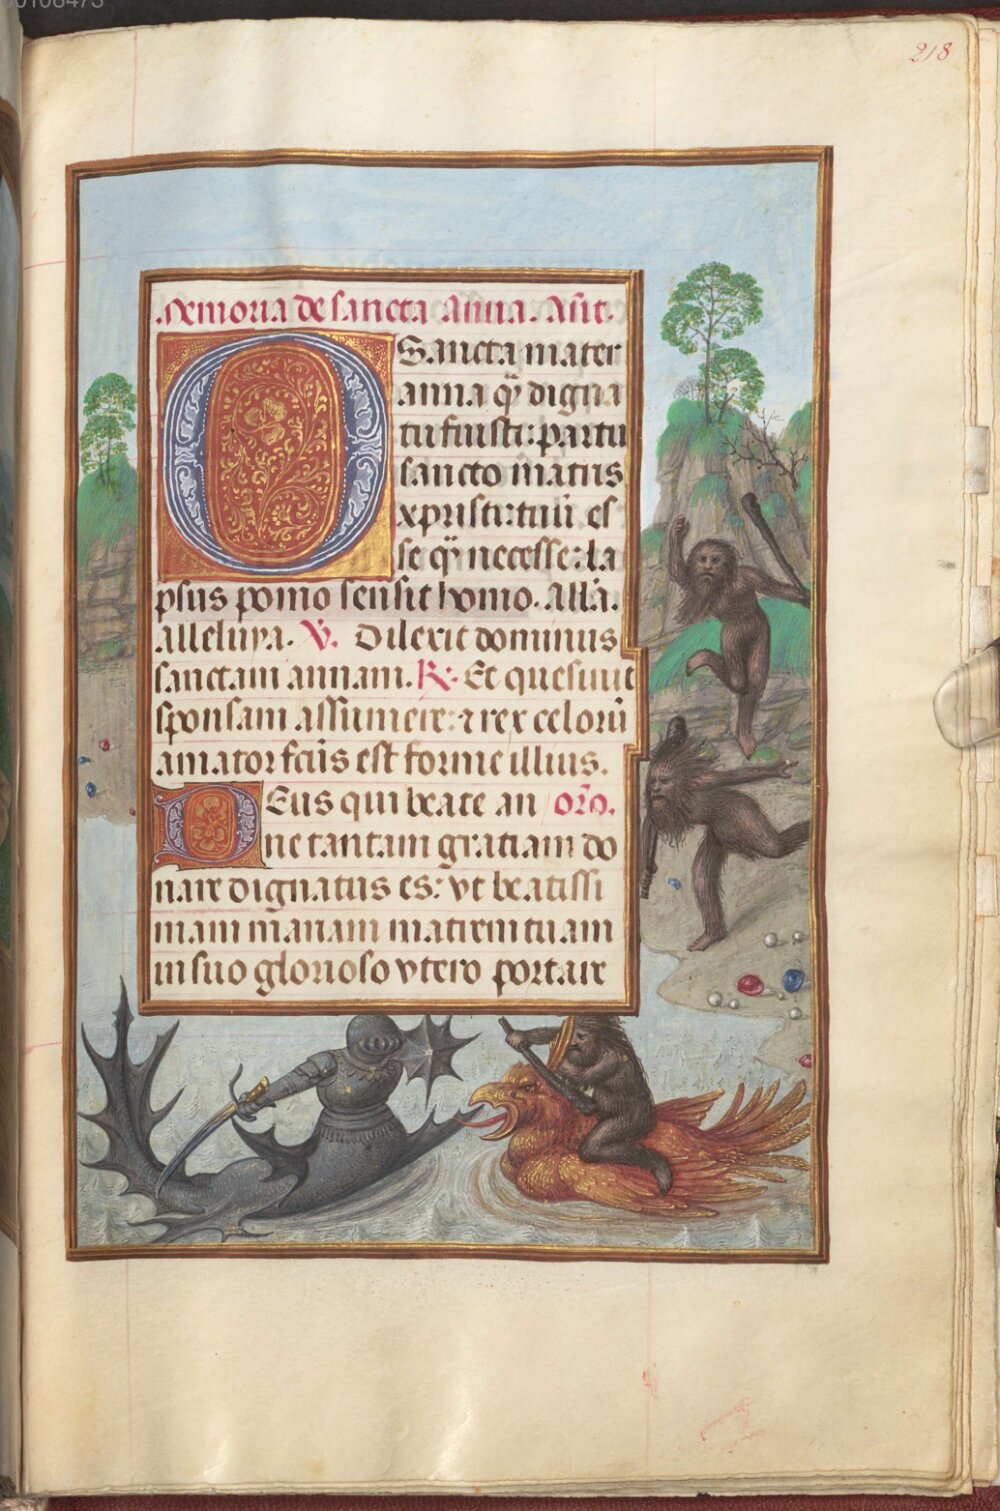 218
Memoria de sancta anna. Añt.
O Sancta mater
anna q̃ digna
tu fuisti: partu
sancto matris
xpristi: tuũ es
se q̃ necesse: la
psus pomo sensit homo. all'a.
alleluya. V̷. Dilexit dominus
sanctam annam. R̷. Et quesiuit
sponsam assumere: ⁊ rex celorũ
amator fc̃us est forme illius.
DEus qui beate an orõ.
ne tantam gratiam do
nare dignatus es: vt beatissi
mam mariam matrem tuam
in suo glorioso vtero portare